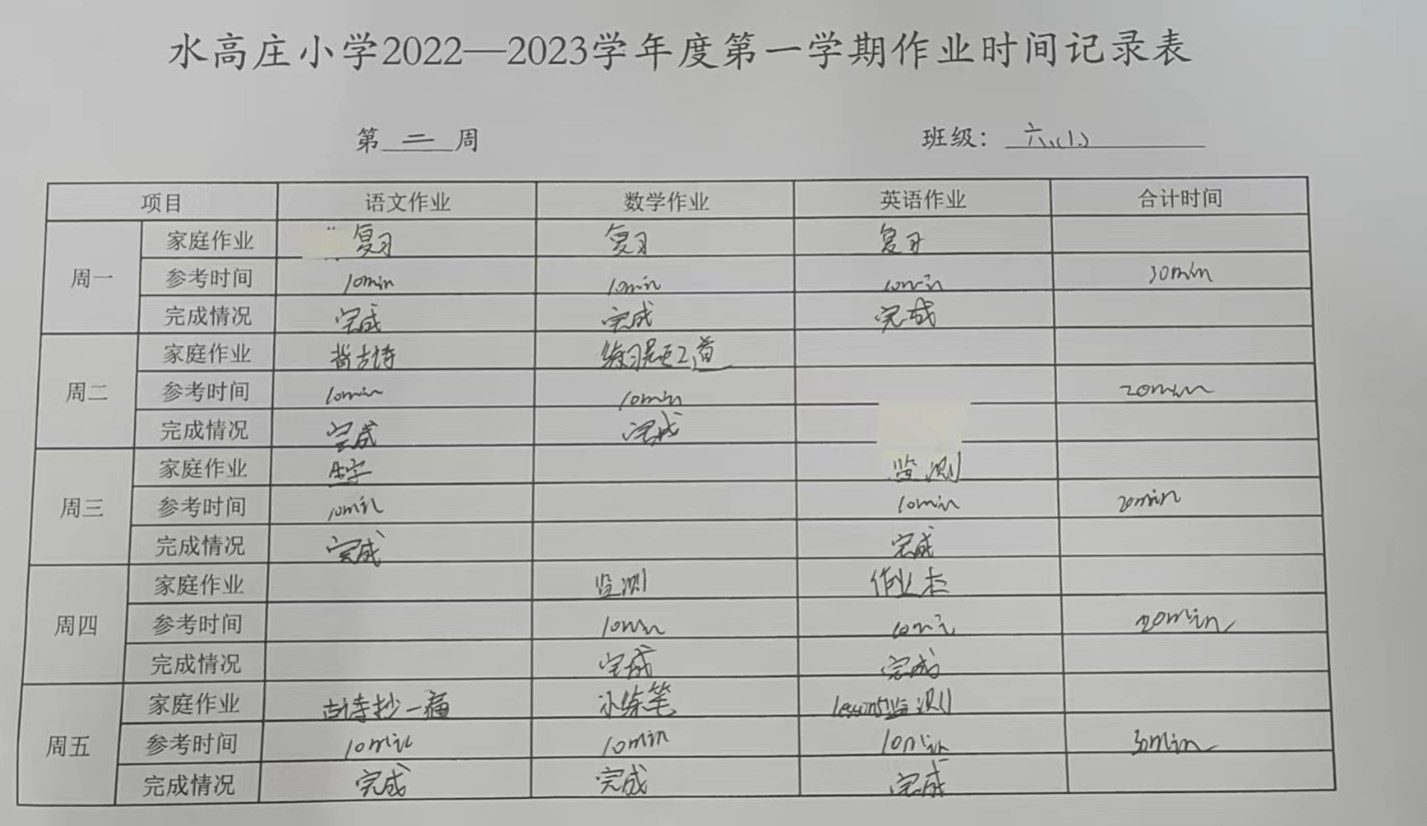 水高庄小学2022—2023学年度第一学期作业时间记录表
第 二 周 班级： 六.(1.)
项目 语文作业 数学作业 英语作业 合计时间
周一 家庭作业 复习 复习 复习
参考时间 10min 10min 10min 30min
完成情况 完成 完成 完成
周二 家庭作业 古诗 练习题2道
参考时间 10min 10min 20min
完成情况 完成 完成
周三 家庭作业 生字 监测
参考时间 10min 10min 20min
完成情况 完成 完成
周四 家庭作业 监测 作业本
参考时间 10min 10min 20min
完成情况 完成 完成
周五 家庭作业 古诗抄一遍 小练笔 lesson5监测
参考时间 10min 10min 10min 30min
完成情况 完成 完成 完成